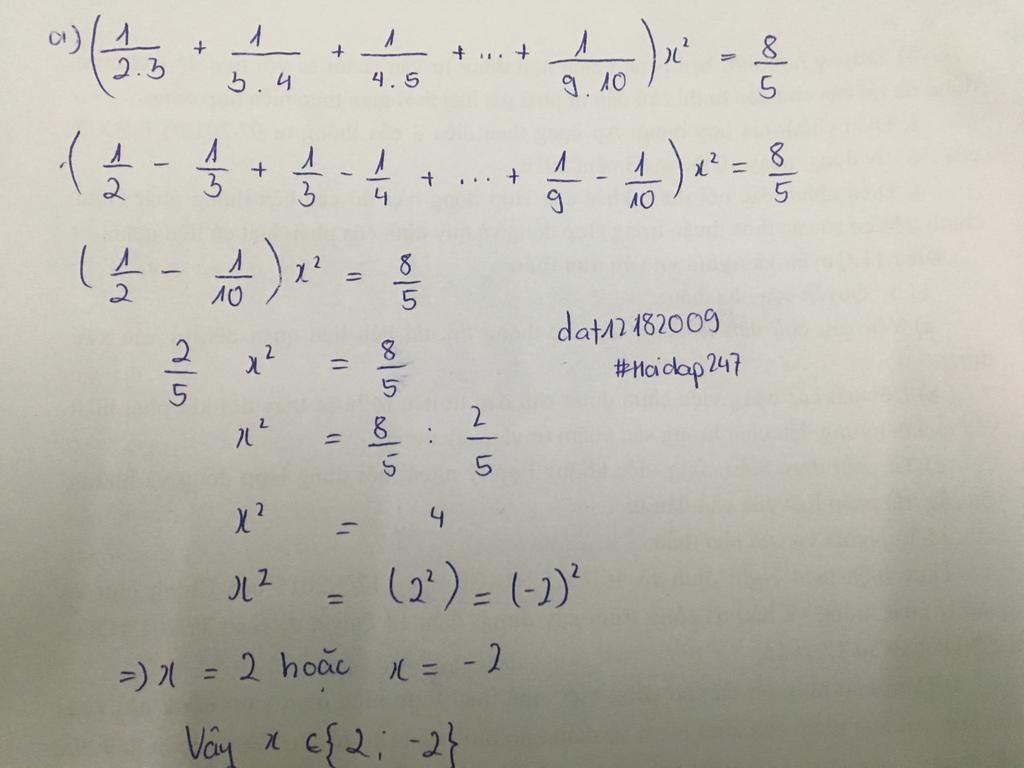 a) (1/2.3 + 1/3.4 + 1/4.5 + ... + 1/9.10)x² = 8/5
(1/2 - 1/3 + 1/3 - 1/4 + ... + 1/9 - 1/10)x² = 8/5
(1/2 - 1/10)x² = 8/5
dat12182009
#Hoidap247
2/5 x² = 8/5
x² = 8/5 : 2/5
x² = 4
x² = (2²) = (-2)²
=) x = 2 hoặc x = -2
Vậy x ∈ {2 ; -2}